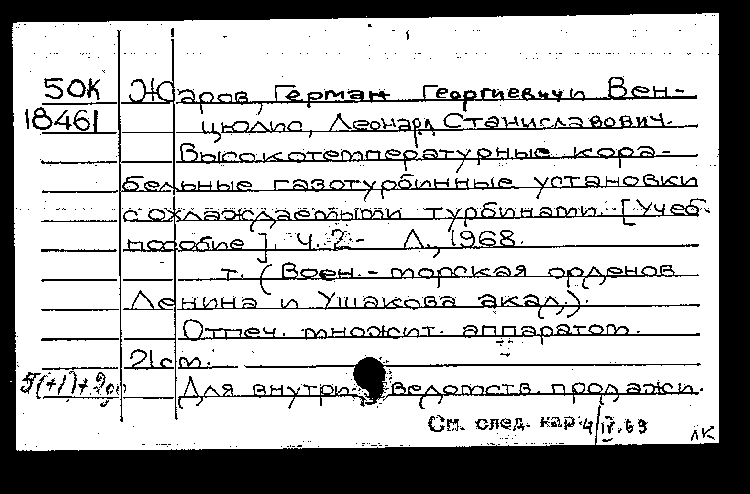 50К Жаров, Герман Георгиевич и Вен-
18461 цюлис, Леонард Станиславович.
Высокотемпературные кора-
бельные газотурбинные установки
с охлаждаемыми турбинами. [Учеб.
пособие]. Ч. 2- Л., 1968.
т. (Воен.-морская орденов
Ленина и Ушакова акад.).
Отпеч. множит. аппаратом.
21 см.
5(+1)+ Для внутриведомств. продажи.
См. след. кар. 4/IV.69
ЛК